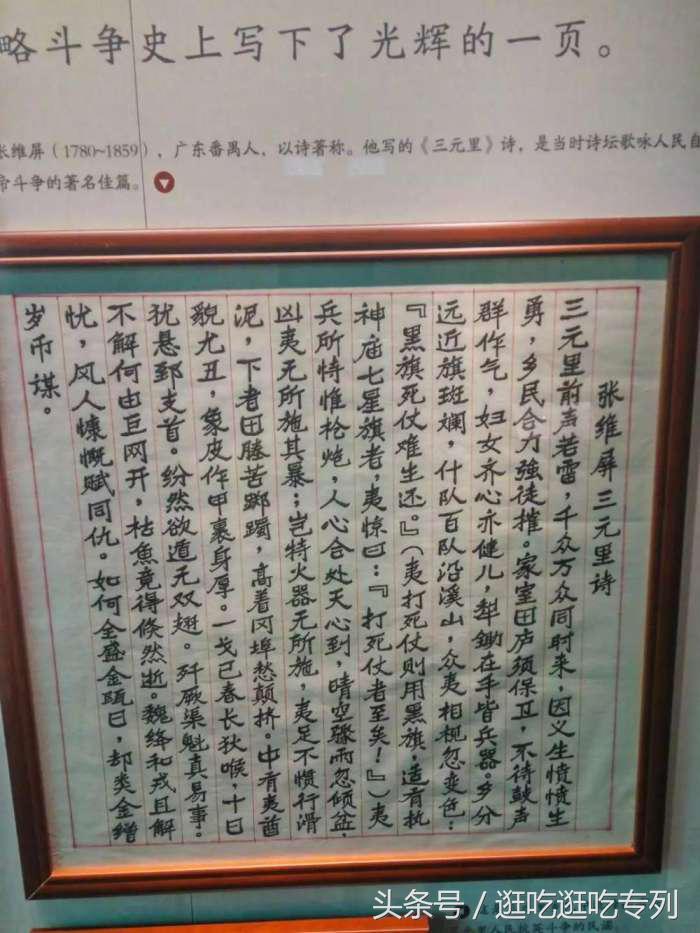 略斗争史上写下了光辉的一页。
张维屏（1780~1859），广东番禺人，以诗著称。他写的《三元里》诗，是当时诗坛歌咏人民自
帝斗争的著名佳篇。
张维屏三元里诗
三元里前声若雷，千众万众同时来，因义生愤愤生
勇，乡民合力強徒摧。家室田庐须保卫，不待鼓声
群作气，妇女齐心亦健儿，犁鋤在手皆兵器。乡分
远近旗斑斓，什队百队沿溪山，众夷相视忽变色：
『黑旗死仗难生还。』（夷打死仗则用黑旗，适有执
神庙七星旗者，夷惊曰：『打死仗者至矣！』）夷
兵所恃惟枪炮，人心合处天心到，晴空骤雨忽倾盆，
凶夷无所施其暴；岂特火器无所施，夷足不惯行滑
泥，下者田塍苦踯躅，高着冈埠愁颠挤。中有夷酋
貌尤丑，象皮作甲裹身厚。一戈已春长狄喉，十日
犹悬郅支首。纷然欲遁无双翅。歼厥渠魁真易事。
不解何由巨网开，枯魚竟得倏然逝。魏绛和戎且解
忧，风人慷慨赋同仇。如何全盛金瓯日，却类金缯
岁币谋。
头条号 / 逛吃逛吃专列
里人民抗英斗争的民谣。